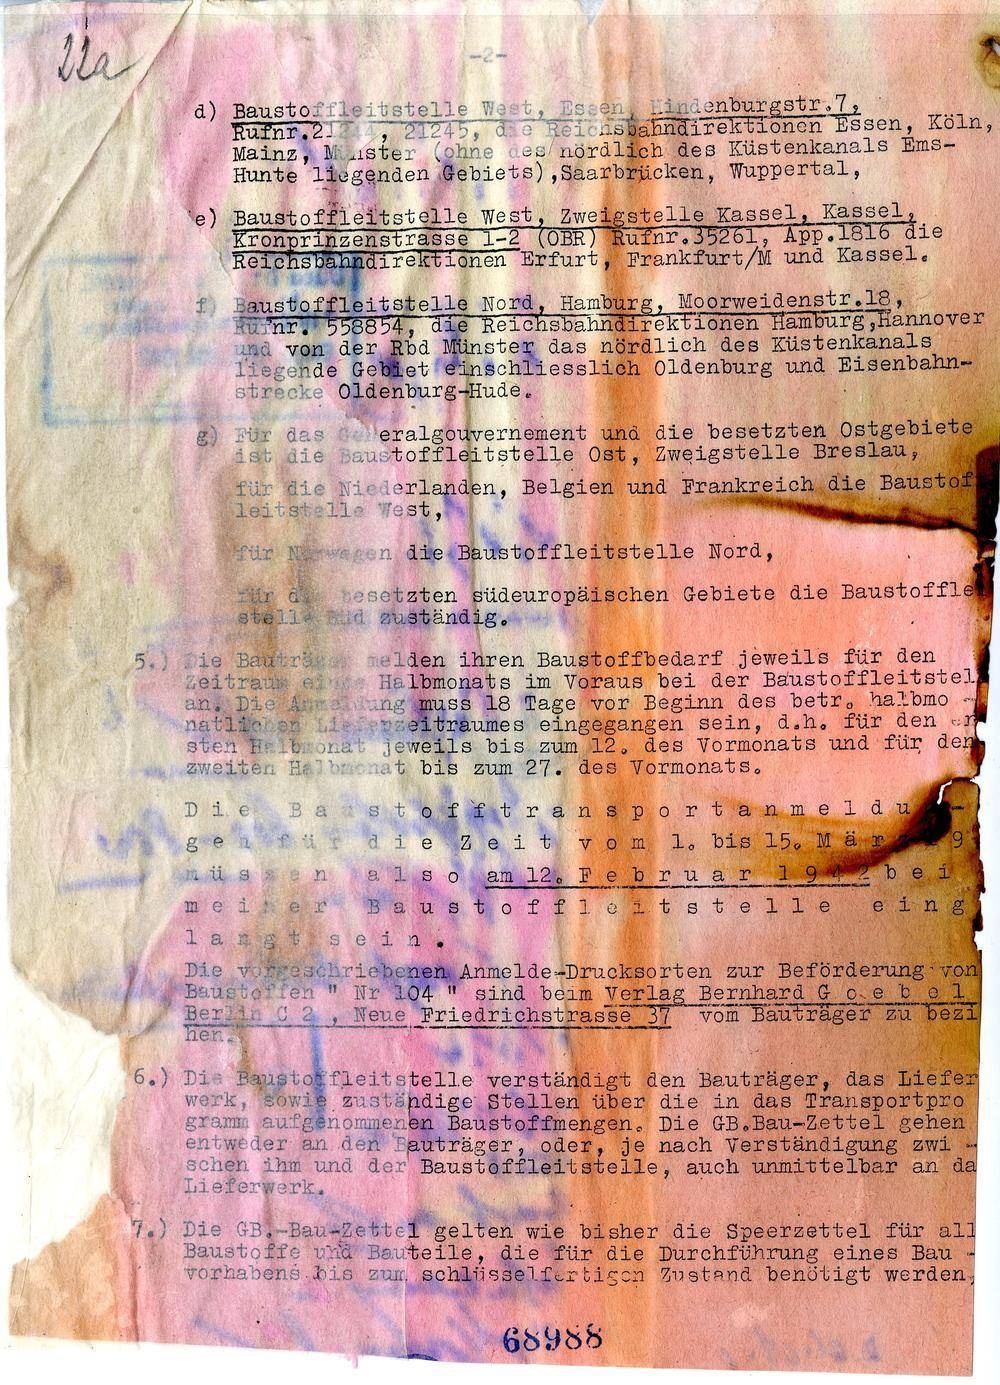 22a
-2-
d) Baustoffleitstelle West, Essen, Hindenburgstr.7,
Rufnr.21244, 21245, die Reichsbahndirektionen Essen, Köln,
Mainz, Münster (ohne des nördlich des Küstenkanals Ems-
Hunte liegenden Gebiets),Saarbrücken, Wuppertal,
e) Baustoffleitstelle West, Zweigstelle Kassel, Kassel,
Kronprinzenstrasse 1-2 (OBR) Rufnr.35261, App.1816 die
Reichsbahndirektionen Erfurt, Frankfurt/M und Kassel.
f) Baustoffleitstelle Nord, Hamburg, Moorweidenstr.18,
Rufnr. 558854, die Reichsbahndirektionen Hamburg,Hannover
und von der Rbd Münster das nördlich des Küstenkanals
liegende Gebiet einschliesslich Oldenburg und Eisenbahn-
strecke Oldenburg-Hude.
g) Für das Generalgouvernement und die besetzten Ostgebiete
ist die Baustoffleitstelle Ost, Zweigstelle Breslau,
für die Niederlanden, Belgien und Frankreich die Baustof
leitstelle West,
für Norwegen die Baustoffleitstelle Nord,
für die besetzten südeuropäischen Gebiete die Baustoffle
stelle Süd zuständig.
5.) Die Bauträger melden ihren Baustoffbedarf jeweils für den
Zeitraum eines Halbmonats im Voraus bei der Baustoffleitstel
an. Die Anmeldung muss 18 Tage vor Beginn des betr. halbmo -
natlichen Lieferzeitraumes eingegangen sein, d.h. für den er
sten Halbmonat jeweils bis zum 12. des Vormonats und für den
zweiten Halbmonat bis zum 27. des Vormonats.
D i e B a u s t o f f t r a n s p o r t a n m e l d u -
g e n f ü r d i e Z e i t v o m 1. bis 15. M ä r 9
m ü s s e n a l s o am 12. F e b r u a r 1 9 4 2 b e i
m e i n e r B a u s t o f f l e i t s t e l l e e i n g
l a n g t s e i n .
Die vorgeschriebenen Anmelde-Drucksorten zur Beförderung von
Baustoffen " Nr 104 " sind beim Verlag Bernhard G o e b e l
Berlin C 2 , Neue Friedrichstrasse 37 vom Bauträger zu bezi
hen.
6.) Die Baustoffleitstelle verständigt den Bauträger, das Liefer
werk, sowie zuständige Stellen über die in das Transportpro
gramm aufgenommenen Baustoffmengen. Die GB.Bau-Zettel gehen
entweder an den Bauträger, oder, je nach Verständigung zwi -
schen ihm und der Baustoffleitstelle, auch unmittelbar an da
Lieferwerk.
7.) Die GB.-Bau-Zettel gelten wie bisher die Speerzettel für all
Baustoffe und Bauteile, die für die Durchführung eines Bau -
vorhabens bis zum schlüsselfertigen Zustand benötigt werden,
68988